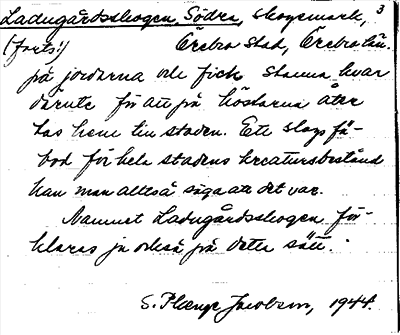 Ladugårdsskogen, Södra, skogsmark, 3
(forts.) Örebro stad, Örebro län.
på jordarna och fick stanna kvar
därute för att på höstarna åter
tas hem till staden. Ett slags fä-
bod för hela stadens kreatursbestånd
kan man alltså säga att det var.
Namnet Ladugårdsskogen för-
klaras ju också på detta sätt.
S. Jacobson, 1944.